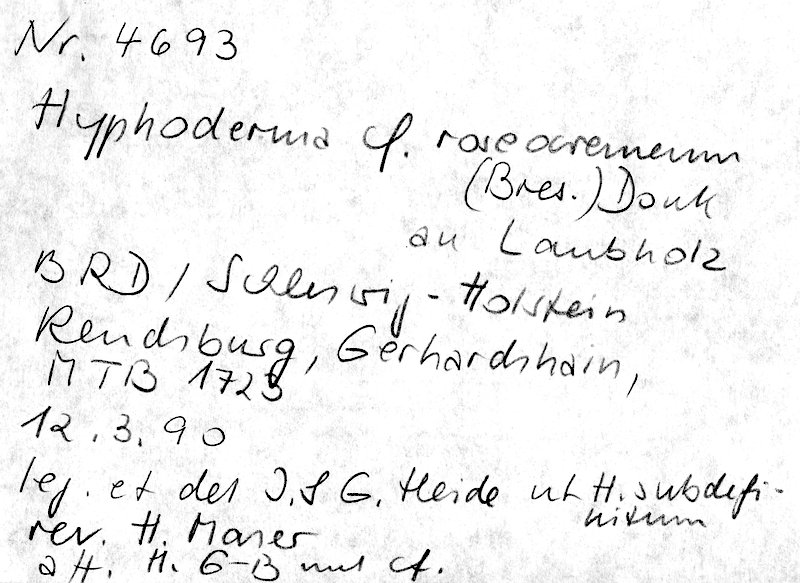 Nr. 4693
Hyphoderma cf. roseocremeum
(Bres.) Donk
an Laubholz
BRD / Schleswig-Holstein
Rendsburg, Gerhardshain,
MTB 1723
12.3.90
leg. et det J. & G. Heide ut H. subdefi-
nitum
rev. H. Manser
H. G-B cf.